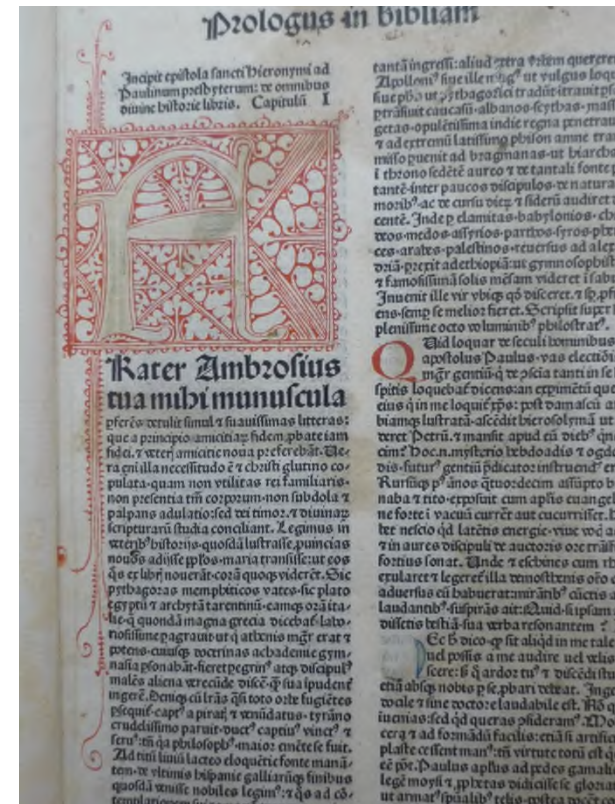 Prologus in bibliam
Incipit epistola sancti Hieronymi ad
Paulinum presbyterum: de omnibus
diuine historie libris. Capitulũ I
Rater Ambrosius
tua mihi munuscula
ꝑferẽs detulit simul ⁊ suauissimas litteras:
que a principio amicitiaꝝ fidem ꝓbate iam
fidei ⁊ veteris amicitie noua preferebãt. Ue-
ra enĩ illa necessitudo ẽ ⁊ christi glutino co-
pulata quam non vtilitas rei familiaris
non presentia tm̃ corporum non subdola ⁊
palpans adulatio: sed dei timor ⁊ diuinaꝝ
scripturarũ studia conciliant. Legimus in
veterib⁹ historijs quosdã lustrasse ꝓuincias
nouos adijsse ppl̃os maria transisse: ut eos
q̃s ex libris nouerãt corã quoqꝫ viderẽt. Sic
pythagoras memphiticos vates sic plato
egyptũ ⁊ archytã tarentinũ eamqꝫ orã ita-
lie q̃ quondã magna grecia dicebat̃ labo-
riosissime ꝑagrauit: ut q̃ athenis mgr̃ erat ⁊
potens cuiusqꝫ doctrinas achademie gym-
nasia ꝑsonabãt fieret ꝑegrin⁹ atqꝫ discipul⁹
malẽs aliena verecũde discẽ q̃ꝫ sua ĩpudent̃
ingerẽ. Deniqꝫ cũ lr̃as q̃si toto orbe fugiẽtes
ꝑsequit̃ capt⁹ a piratis ⁊ venũdatus tyrãno
crudelissimo paruit duct⁹ captiu⁹ vinct⁹ ⁊
seru⁹: tñ q̃a philosoph⁹ maior emẽte se fuit.
Ad titũ liuiũ lacteo eloquẽtie fonte manã-
tem de vltimis hispanie galliarũqꝫ finibus
quosdã venisse nobiles legim⁹: ⁊ q̃s ad cõ-
templationem sui
tantã ingressi: aliud extra vrbem quererẽt
Apolloni⁹ siue ille mag⁹ ut vulgus loq̃
siue ph̃us ut pythagorici tradũt itrauit ꝑs
ptrãsiuit caucasũ albanos scythas mas
getas opulẽtissima indie regna penetraui
⁊ ad extremũ latissimo phison amne trans
misso ꝑuenit ad bragmanas ut hiarchã
ĩ throno sedẽtẽ aureo ⁊ de tantali fonte po
tantẽ inter paucos discipulos de natura
morib⁹ ac de cursu dierꝝ ⁊ siderũ audiret do
centẽ. Inde ꝑ elamitas babylonios chal
deos medos assyrios parthos syros phe
ces arabes palestinos reuersus ad alex
driã ꝑrexit ad ethiopiã: ut gymnosophist
⁊ famosissimã solis mẽsam videret ĩ sab
Inuenit ille vir vbiqꝫ qd̃ disceret ⁊ sꝑ ꝓfi
ens semꝑ se melior fieret. Scripsit super h
plenissime octo voluminib⁹ philostrat⁹.
Quid loquar de seculi hominibus
apostolus Paulus vas electiõi
mgr̃ gentiũ q̃ de ꝯscia tanti in se
spitis loquebat̃ dicens: an exꝑimẽtũ que
eius q̃ in me loquit̃ xp̃s: post damascũ ar
biamqꝫ lustratã ascẽdit hierosolymã ut
deret Petrũ ⁊ mansit apud eũ dieb⁹ q̃n
cim? Hoc.n.mysterio hebdoadis ⁊ ogdo
dis futur⁹ gentiũ p̃dicator instruend⁹ er
Rursũqꝫ p⁹ ãnos q̃tuordecim assũpto b
naba ⁊ tito exposuit cum apl̃is euangeli
ne forte ĩ vacuũ currẽt aut cucurrisset. h
bet nescio qd̃ latẽtis energie viue voc̃ a
⁊ in aures discipuli de auctoris ore trãs
fortius sonat. Unde ⁊ eschines cum rh
exularet ⁊ legeret̃ illa demosthenis oĩo q̃
aduersus eũ habuerat: mirãtib⁹ cũctis a
laudantib⁹ suspirãs ait: Quid si ipsam
dissetis bestiã sua verba resonantem?
Ec h̃ dico qꝫ sit aliq̃d in me tale
uel possis a me audire uel velis
scere: sꝫ q̃ ardor tu⁹ ⁊ discẽdi stu
etiã absqꝫ nobis ꝑ se ꝓbari debeat. Inge
docile ⁊ sine doctore laudabile est. Nõ q
iuenias: sed qd̃ queras ꝯsideram⁹. Mo
cera ⁊ ad formãdũ facilis: etiã si artific
plaste cessent man⁹: tñ virtute totũ est q
eẽ põt. Paulus apl̃us ad pedes gamali
legẽ moysi ⁊ ꝓphetas didicisse se glor
ut armat⁹ spũalib⁹ telis